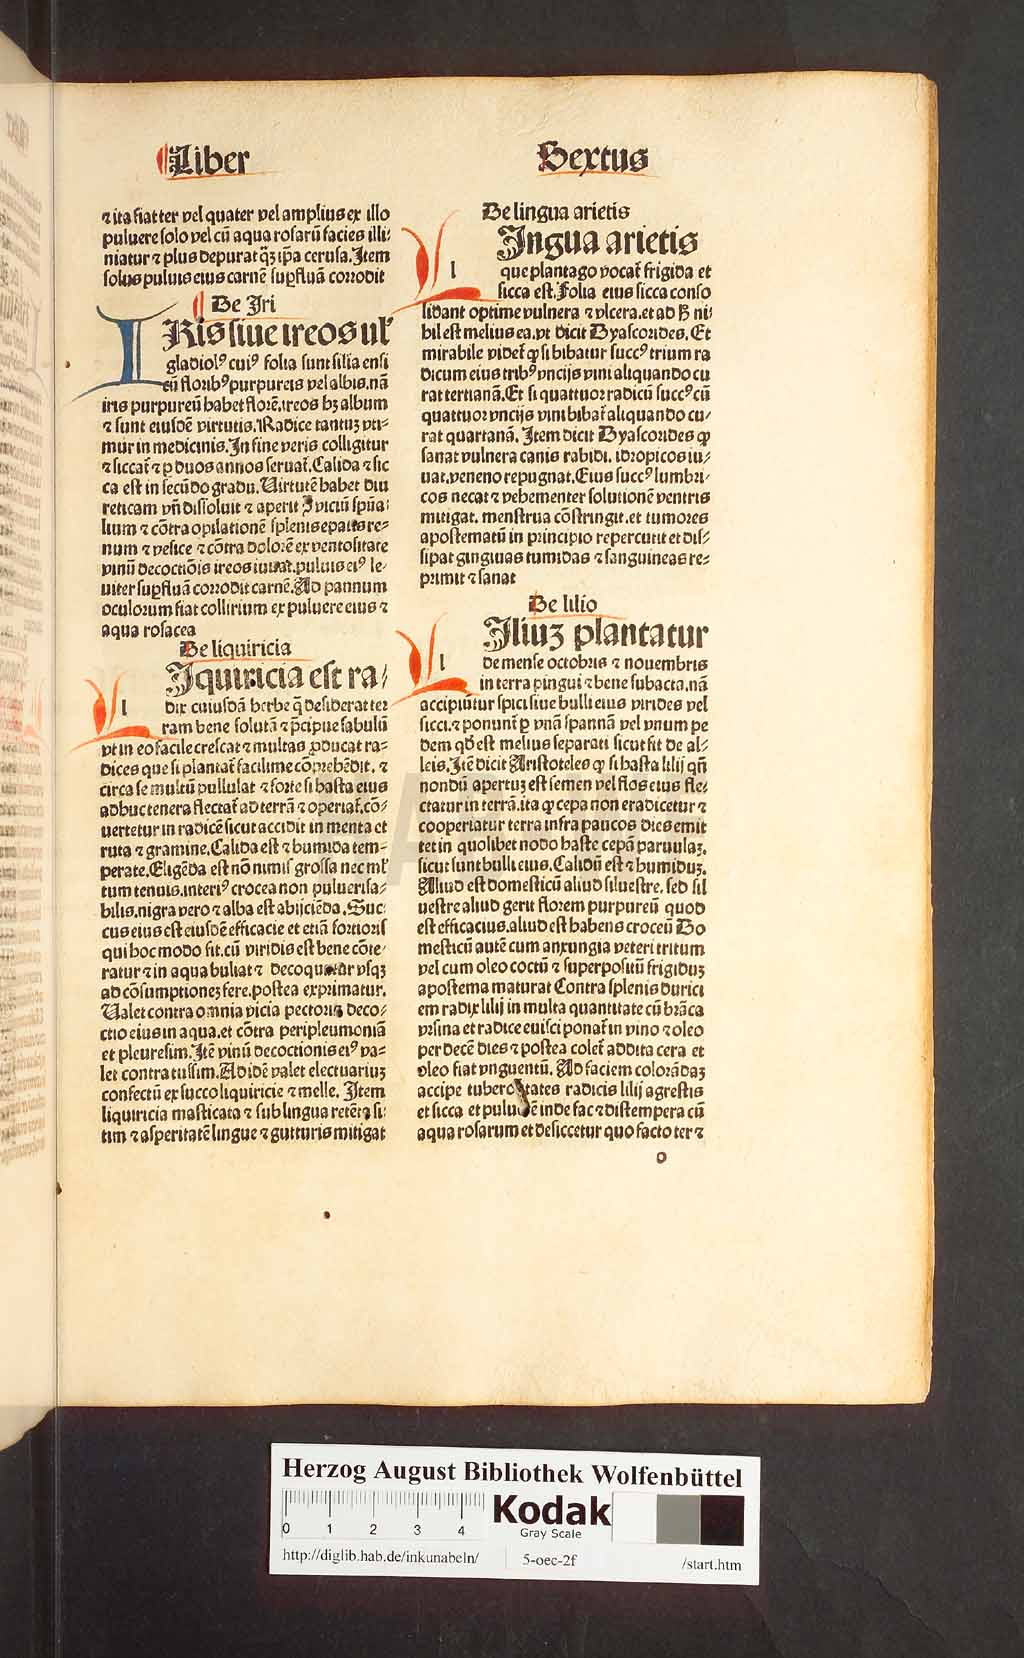 Liber
Sextus
⁊ ita fiat ter vel quater vel amplius ex illo
puluere solo vel cū aqua rosarū facies illi⸗
niatur ⁊ plus depurat qꝫ ip̄a cerusa. Item
solus puluis eius carnē suꝑfluā corrodit
De Iri
IRis siue ireos ul̓
gladiolꝰ cuiꝰ folia sunt silia ensi
cū floribꝰ purpureis vel albis. nā
iris purpureū habet florē. ireos hꝫ album
⁊ sunt eiusdē virtutis. Radice tantuꝫ vti⸗
mur in medicinis. In fine veris colligitur
⁊ siccat̄ ⁊ ꝑ duos annos seruat̄. Calida ⁊ sic
ca est in secūdo gradu. Uirtutē habet diu
reticam vn̄ dissoluit ⁊ aperit viciū spūa⸗
lium ⁊ cōtra opilationē splenis epatis re⸗
num ⁊ vesice ⁊ cōtra dolorē ex ventositate
vinū decoctiōis ireos iuuat. puluis eiꝰ le⸗
uiter suꝑfluā corrodit carnē. Ad pannum
oculorum fiat collirium ex puluere eius ⁊
aqua rosacea
De liquiricia
lIquiricia est ra⸗
dix cuiusdā herbe q̄ desiderat ter
ram bene solutā ⁊ p̄cipue sabulū
vt in eo facile crescat ⁊ multas ꝓducat ra⸗
dices que si plantat̄ facilime cōprehēdit. ⁊
circa se multū pullulat ⁊ forte si hasta eius
adhuc tenera flectat̄ ad terrā ⁊ operiat̄. cō⸗
uertetur in radicē sicut accidit in menta et
ruta ⁊ gramine. Calida est ⁊ humida tem⸗
perate. Eligēda est nō nimis grossa nec ml̓
tum tenuis. interiꝰ crocea non puluerisa⸗
bilis. nigra vero ⁊ alba est abijciēda. Suc⸗
cus eius est eiusdē efficacie et etiā fortioris
qui hoc modo fit. cū viridis est bene cōte⸗
ratur ⁊ in aqua buliat ⁊ decoquatur vsqꝫ
ad cōsumptioneꝫ fere. postea exprimatur.
Ualet contra omnia vicia pectoris deco⸗
ctio eius in aqua. et cōtra peripleumoniā
et pleuresim. Itē vinū decoctionis eiꝰ va⸗
let contra tussim. Ad idē valet electuariuꝫ
confectū ex succo liquiricie ⁊ melle. Item
liquiricia masticata ⁊ sub lingua retēta si⸗
tim ⁊ asperitatē lingue ⁊ gutturis mitigat
De lingua arietis
lIngua arietis
que plantago vocat̄ frigida et
sicca est. Folia eius sicca conso
lidant optime vulnera ⁊ vlcera. et ad ꝭ ni⸗
hil est melius ea. vt dicit Dyascorides. Et
mirabile videt̄ ꝙ si bibatur succꝰ trium ra
dicum eius tribꝰ vncijs vini aliquando cu
rat tertianā. Et si quattuor radicū succꝰ cū
quattuor vncijs vini bibat̄ aliquando cu⸗
rat quartanā. Item dicit Dyascorides ꝙ
sanat vulnera canis rabidi. idropicos iu⸗
uat. veneno repugnat. Eius succꝰ lumbri⸗
cos necat ⁊ vehementer solutionē ventris
mitigat. menstrua cōstringit. et tumores
apostematū in principio repercutit et dis⸗
sipat gingiuas tumidas ⁊ sanguineas re⸗
primit ⁊ sanat
De lilio
lIliuꝫ plantatur
de mense octobris ⁊ nouembris
in terra pingui ⁊ bene subacta. nā
accipiūtur spici siue bulli eius virides vel
sicci. ⁊ ponunt̄ ꝑ vnā spannā vel vnum pe
dem qd̄ est melius separati sicut fit de al⸗
leis. Itē dicit Aristoteles ꝙ si hasta lilij qn̄
nondū apertuꝫ est semen vel flos eius fle⸗
ctatur in terrā. ita ꝙ cepa non eradicetur ⁊
cooperiatur terra infra paucos dies emit
tet in quolibet nodo haste cepā paruulaꝫ.
sicut sunt bulli eius. Calidū est ⁊ humiduꝫ.
Aliud est domesticū aliud siluestre. sed sil
uestre aliud gerit florem purpureū quod
est efficacius. aliud est habens croceū Do
mesticū autē cum anxungia veteri tritum
vel cum oleo coctū ⁊ superpositū frigiduꝫ
apostema maturat Contra splenis durici
em radix lilij in multa quantitate cū brāca
vrsina et radice euisci ponat̄ in vino ⁊ oleo
per decē dies ⁊ postea colet̄ addita cera et
oleo fiat vnguentū. Ad faciem colorādaꝫ
accipe tuberositates radicis lilij agrestis
et sicca et puluerē inde fac ⁊ distempera cū
aqua rosarum et desiccetur quo facto ter ⁊
o
Herzog August Bibliothek Wolfenbüttel
0 1 2 3 4
Kodak
Gray Scale
http://diglib.hab.de/inkunabeln/ 5-oec-2f /start.htm